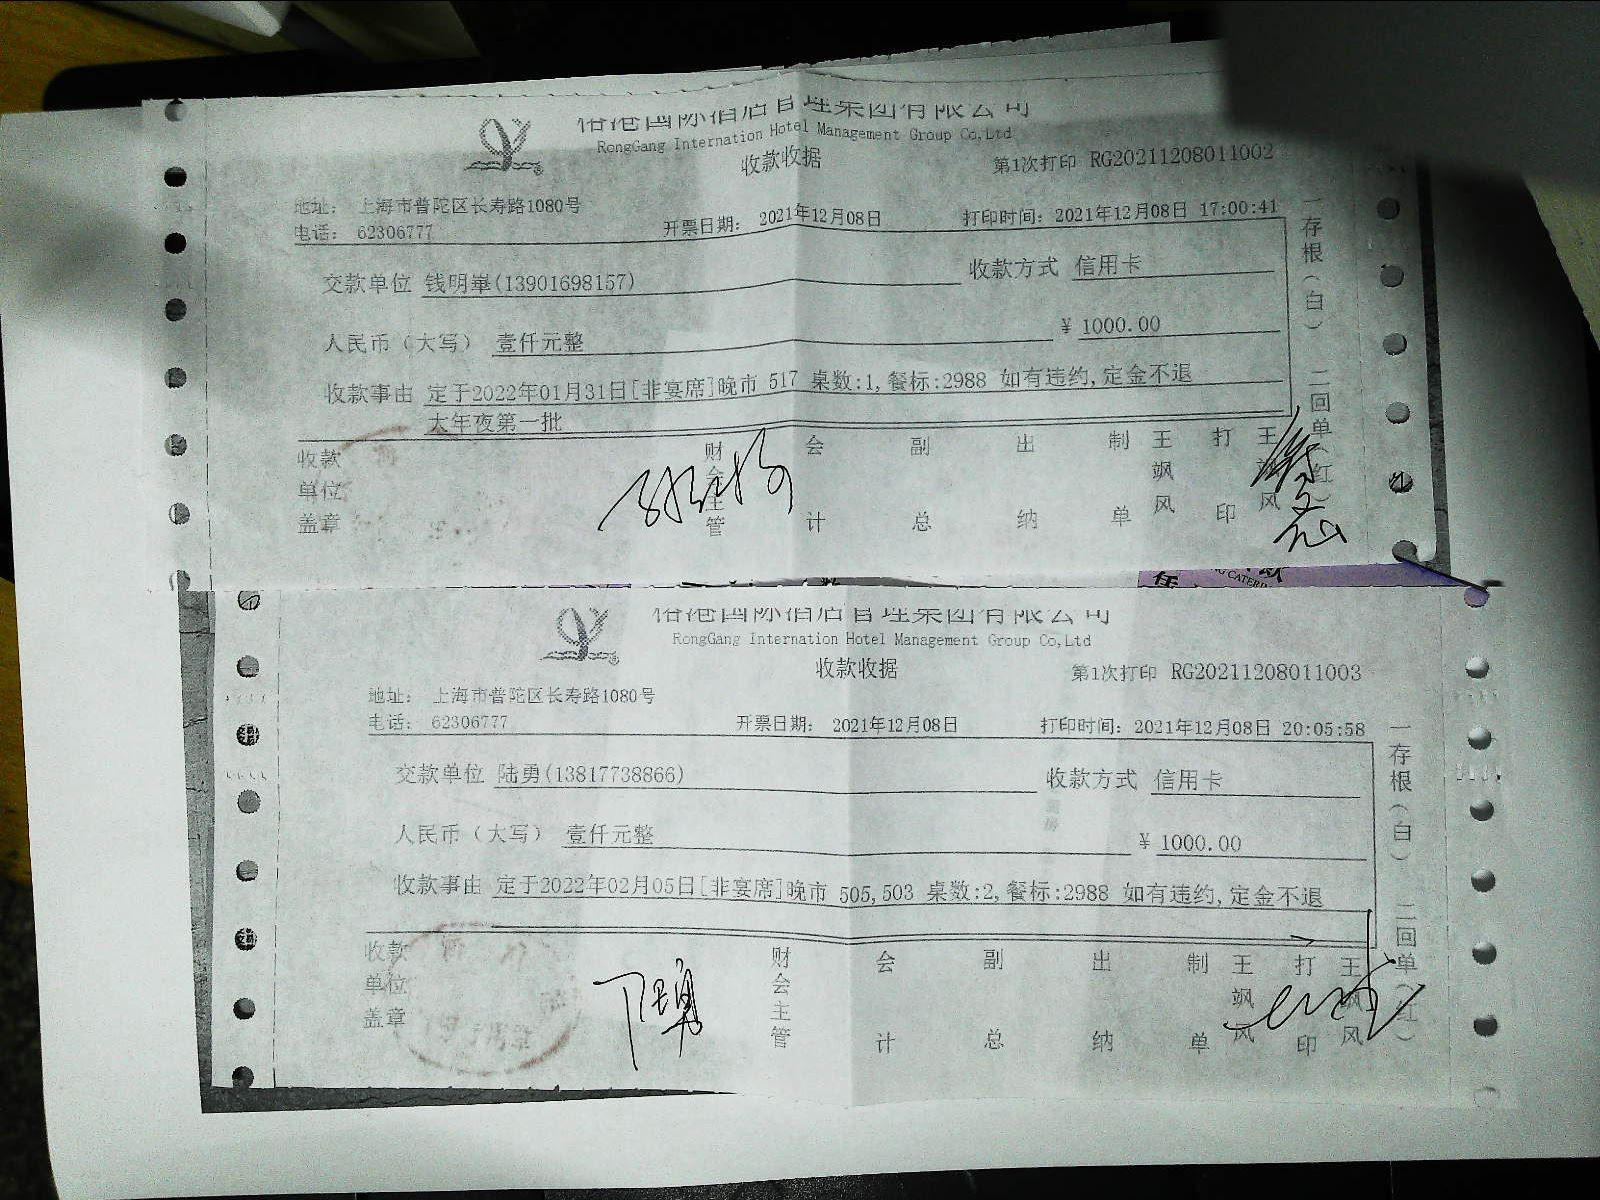 榕港国际酒店管理集团有限公司
RongGang Internation Hotel Management Group Co,Ltd
收款收据
第1次打印 RG20211208011002
地址： 上海市普陀区长寿路1080号
电话： 62306777
开票日期： 2021年12月08日
打印时间：2021年12月08日 17:00:41
交款单位 钱明崋(13901698157)
收款方式 信用卡
人民币（大写） 壹仟元整
¥ 1000.00
收款事由 定于2022年01月31日[非宴席]晚市 517 桌数:1,餐标:2988 如有违约,定金不退
大年夜第一批
收款单位盖章
财会主管
会计
副总
出纳
制单
王飒风
打印
王飒风
一存根(白) 二回单(红)
CATER
榕港国际酒店管理集团有限公司
RongGang Internation Hotel Management Group Co,Ltd
收款收据
第1次打印 RG20211208011003
地址： 上海市普陀区长寿路1080号
电话： 62306777
开票日期： 2021年12月08日
打印时间：2021年12月08日 20:05:58
交款单位 陆勇(13817738866)
收款方式 信用卡
人民币（大写） 壹仟元整
¥ 1000.00
收款事由 定于2022年02月05日[非宴席]晚市 505,503 桌数:2,餐标:2988 如有违约,定金不退
收款单位盖章
陆勇
财会主管
会计
副总
出纳
制单
王飒风
打印
王飒风
一存根(白) 二回单(红)